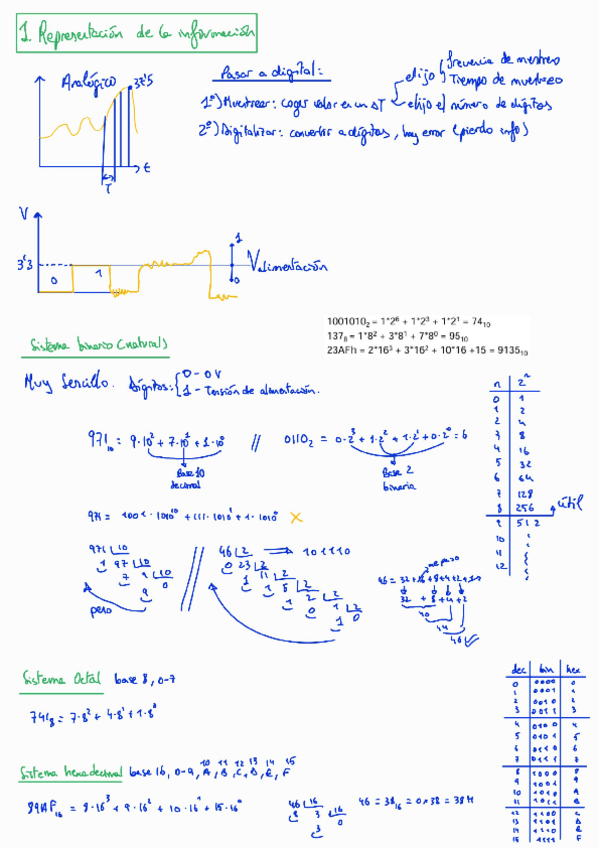 1. Representación de la información
Analógico
37'5
t
T
Pasar a digital:
1º) Muestrear: coger valor en un ΔT
elijo
frecuencia de muestreo
Tiempo de muestreo
elijo el número de dígitos
2º) Digitalizar: convertir a dígitos, hay error (pierdo info)
V
3'3
0
1
1
0
Valimentación
1001010₂ = 1*2⁶ + 1*2³ + 1*2¹ = 74₁₀
137₈ = 1*8² + 3*8¹ + 7*8⁰ = 95₁₀
23AFh = 2*16³ + 3*16² + 10*16 +15 = 9135₁₀
Sistema binario (natural)
Muy Sencillo. Dígitos:
0 - 0 V
1 - Tensión de alimentación.
971₁₀ = 9·10² + 7·10¹ + 1·10⁰ // 0110₂ = 0·2³ + 1·2² + 1·2¹ + 0·2⁰ = 6
Base 10
decimal
Base 2
binaria
971 = 1001·1010¹⁰ + 111·1010¹ + 1·1010⁰ X
971 10
1 97 10
7 9 10
9 0
pero
46 2 ⇒ 101110
0 23 2
1 11 2
1 5 2
1 2 2
0 1 2
1 0
me paso
46 = 32+16+8+4+2+1
32 + 8+4+2
40
44
46 ✓
n 2ⁿ
0 1
1 2
2 4
3 8
4 16
5 32
6 64
7 128
8 256
útil
9 512
10
11
12
Sistema Octal base 8, 0-7
741₈ = 7·8² + 4·8¹ + 1·8⁰
Sistema hexadecimal base 16, 0-9, A, B, C, D, E, F
10 11 12 13 14 15
89AF₁₆ = 8·16³ + 9·16² + 10·16¹ + 15·16⁰
46 16
3 16
3 0
46 = 38₁₆ = 0x38 = 38H
dec bin hex
0 0000 0
1 0001 1
2 0010 2
3 0011 3
4 0100 4
5 0101 5
6 0110 6
7 0111 7
8 1000 8
9 1001 9
10 1010 A
11 1011 B
12 1100 C
13 1101 D
14 1110 E
15 1111 F